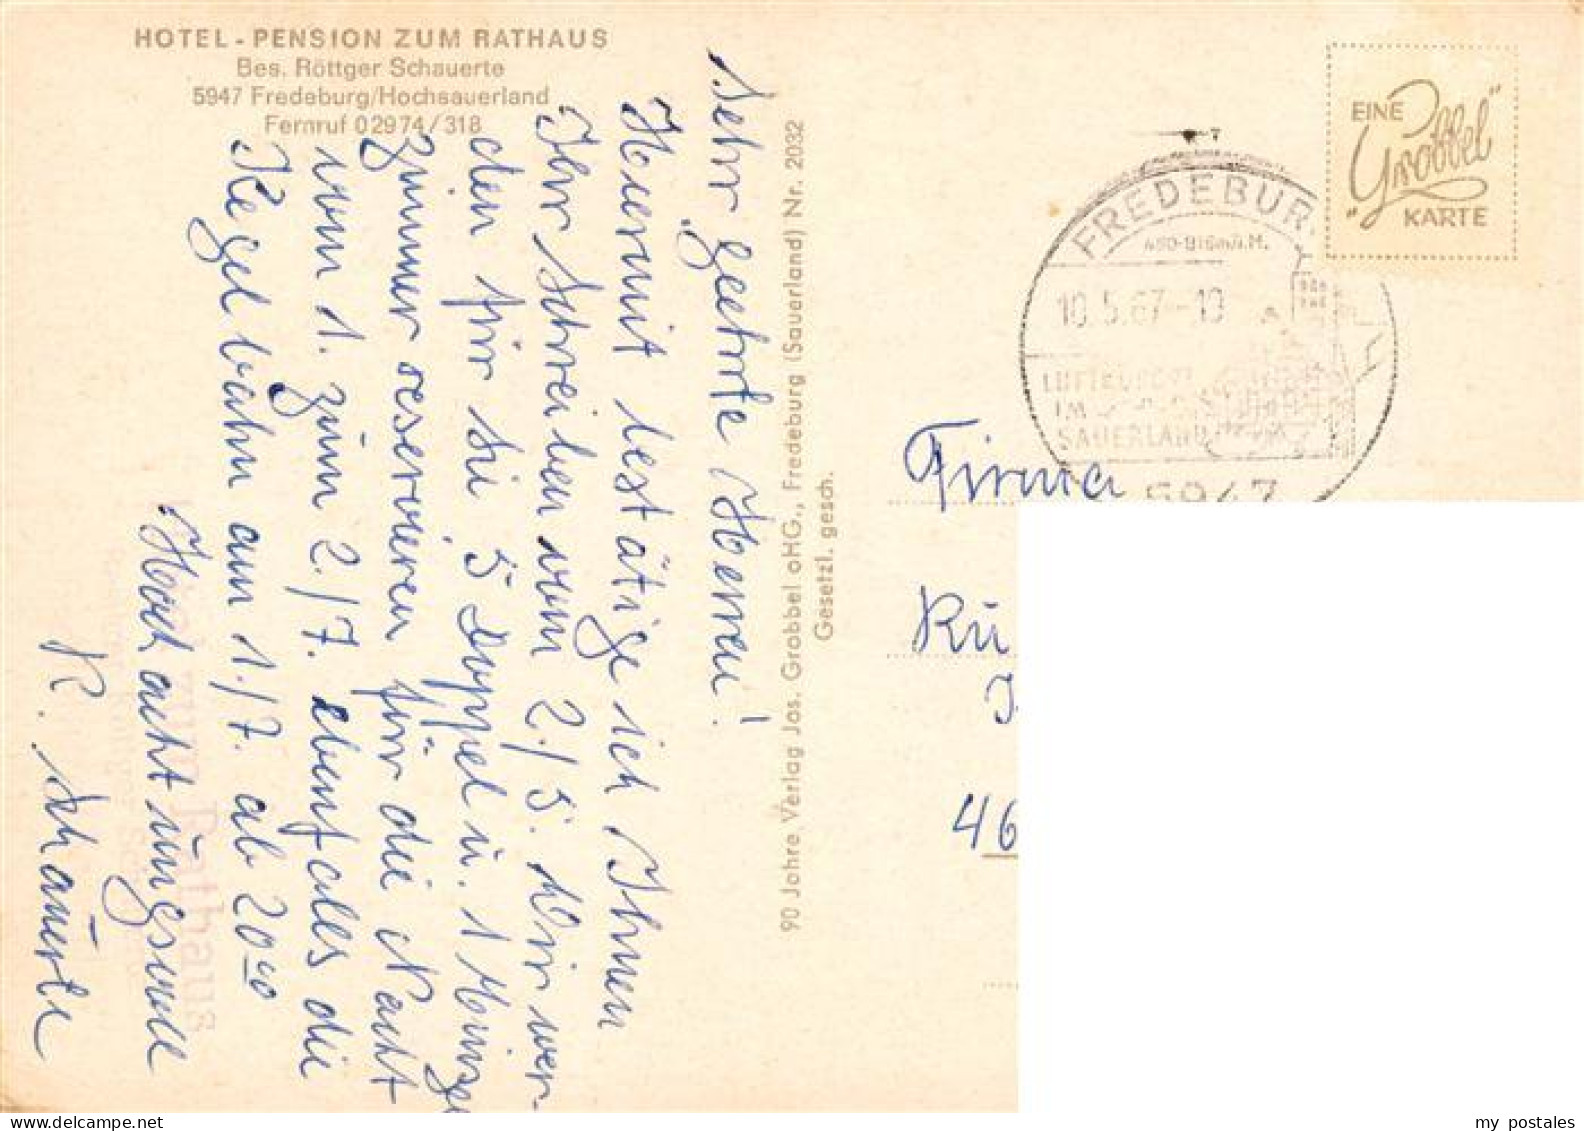 HOTEL - PENSION ZUM RATHAUS
Bes. Röttger Schauerte
5947 Fredeburg/Hochsauerland
Fernruf 02974/318
Sehr geehrte Herren!
Hiermit bestätige ich Ihnen
Ihr Schreiben vom 2./5. Wir wer-
den für Sie 5 Doppel u. 1 Einze
Zimmer reservieren für die Nacht
vom 1. zum 2./7. ebenfalls die
Kegelbahn am 1./7. ab 20⁰⁰
Hochachtungsvoll
R. Schauerte
Rathaus
90 Jahre Verlag Jos. Grobbel oHG., Fredeburg (Sauerland) Nr. 2032
Gesetzl. gesch.
EINE
"Grobbel"
KARTE
FREDEBUR
10.5.67-10
LUFTKURORT
IM
SAUERLAND
5947
Firma
Rü
46
my postales